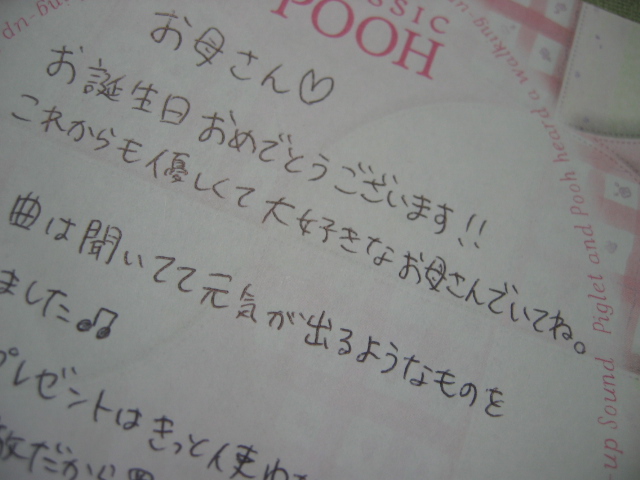 CLASSIC
POOH
お母さん♡
お誕生日おめでとうございます!!
これからも優しくて大好きなお母さんでいてね。
曲は聞いてて元気が出るようなものを
ました♫
プレゼントはきっと使わ
だから
Piglet and Pooh heard a walking-
up Sound